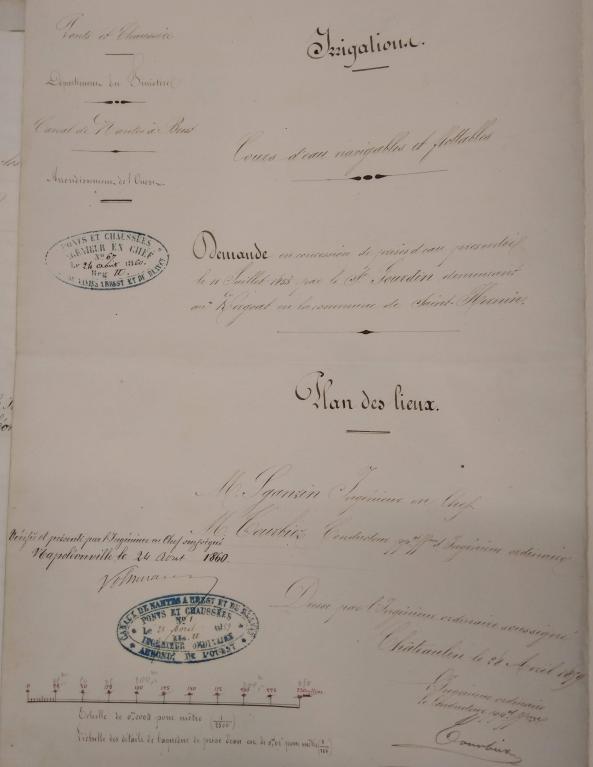 Ponts et Chaussées
Département du Finistère
Canal de Nantes à Brest
Arrondissement de l'Ouest
Irrigations.
Cours d'eau navigables et flottables
PONTS ET CHAUSSÉES
INGÉNIEUR EN CHEF
N° 67
Le 24 août 1860.
Reg II.
DE NANTES À BREST ET DU BLAVET
Demande en concession de prise d'eau présentée
le 11 Juillet 1858 par le Sr Jourden demeurant
au Kergoat en la commune de Saint-Hernin.
Plan des lieux.
M. Sganzin Ingénieur en Chef
M. Conducteur Ingénieur ordinaire
Vérifié et présenté par l'Ingénieur en Chef soussigné
Napoléonville, le 24 Août 1860.
CANAUX DE NANTES À BREST ET DU BLAVET
PONTS ET CHAUSSÉES
N° 1
Le 28 Avril 1859
INGÉNIEUR ORDINAIRE
ARROND. DE L'OUEST
Dressé par l'Ingénieur ordinaire soussigné
Châteaulin le 28 Avril 1859
L'Ingénieur ordinaire
Echelle de 0,0008 pour mètre
Echelle des détails de l'aqueduc de prise d'eau en de 0,01 pour mètre